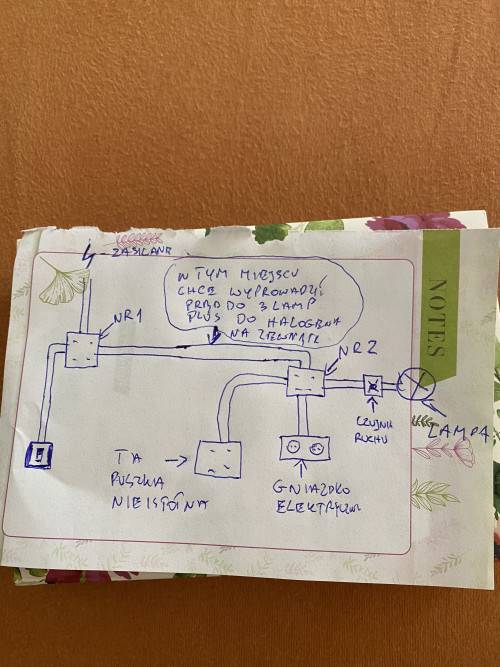 ZASILANE
W TYM MIEJSCU
CHCE WYPROWADZIĆ
PRĄD DO 3 LAMP
PLUS DO HALOGENA
NA ZEWNĄTRZ
NR1
NR2
NOTES
CZUJNIK
RUCHU
LAMPA
TA
PUSZKA
NIEISTOTNA
GNIAZDKO
ELEKTRYCZNE